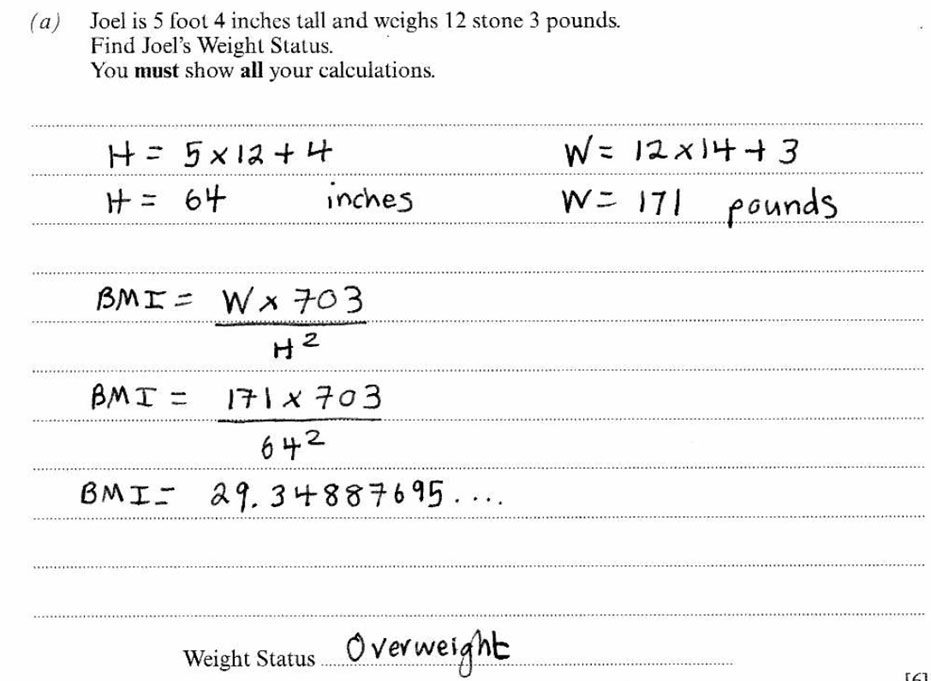 (a) Joel is 5 foot 4 inches tall and weighs 12 stone 3 pounds.
Find Joel's Weight Status.
You must show all your calculations.
H = 5 x 12 + 4 W = 12 x 14 + 3
H = 64 inches W = 171 pounds
BMI = W x 703
H²
BMI = 171 x 703
64²
BMI = 29.34887695....
Weight Status Overweight
[6]